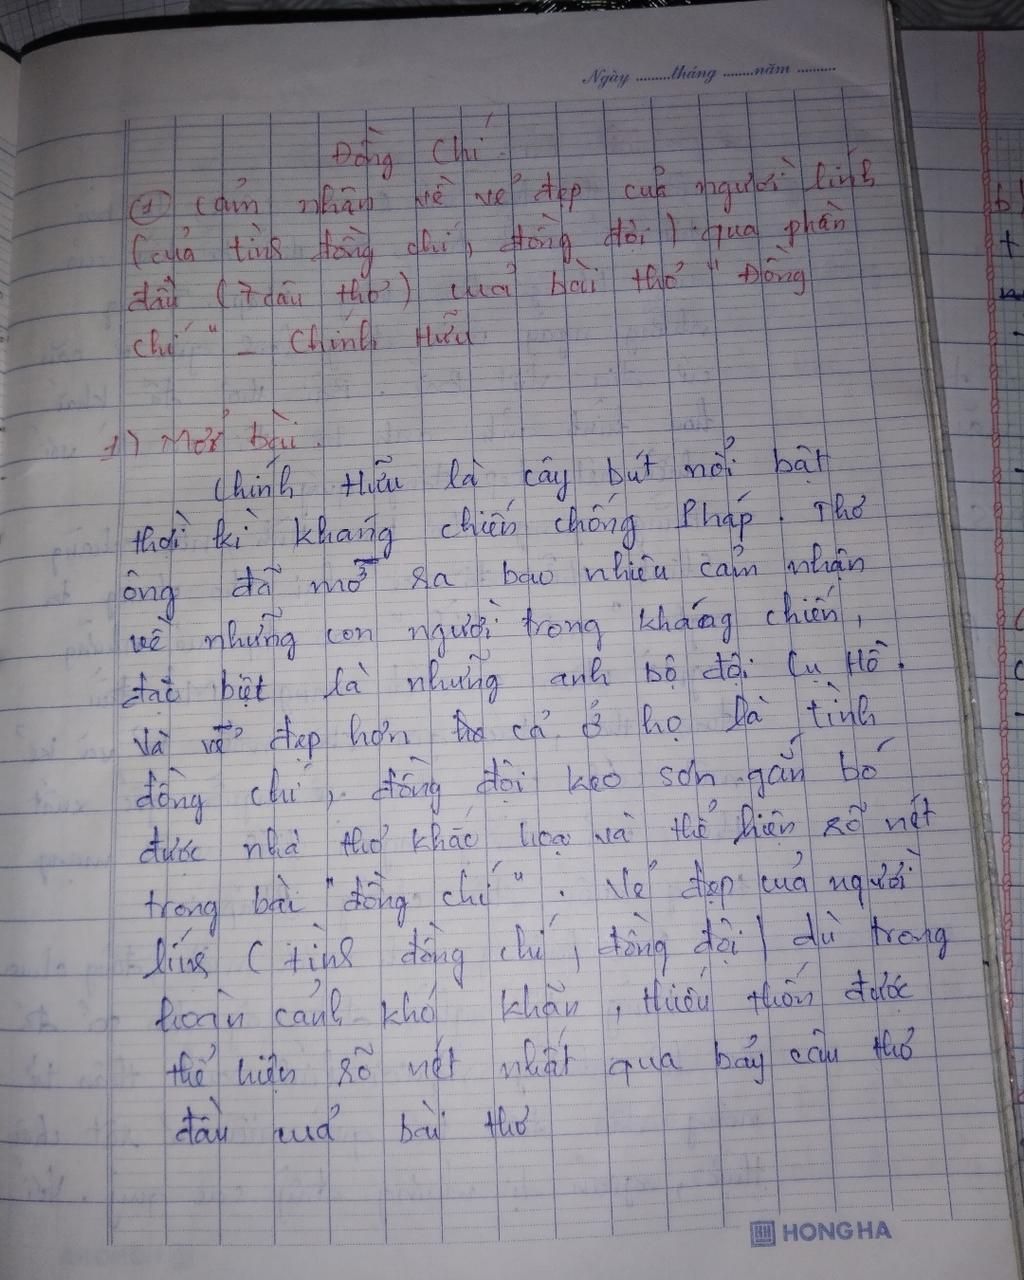 Ngày .........tháng ........năm ..........
Đồng Chí
① Cảm nhận về vẻ đẹp của người lính
(của tình đồng chí, đồng đội) qua phần
đầu (7 câu thơ) của bài thơ " Đồng
chí " - Chính Hữu
1) Mở bài.
Chính Hữu là cây bút nổi bật
thời kì kháng chiến chống Pháp. Thơ
ông đã mở ra bao nhiêu cảm nhận
về những con người trong kháng chiến,
đặc biệt là những anh bộ đội Cụ Hồ.
Và vẻ đẹp hơn cả ở họ là tình
đồng chí, đồng đội keo sơn gắn bó
được nhà thơ khắc hoạ và thể hiện rõ nét
trong bài "đồng chí". Vẻ đẹp của người
lính (tình đồng chí, đồng đội) dù trong
hoàn cảnh khó khăn, thiếu thốn được
thể hiện rõ nét nhất qua bảy câu thơ
đầu của bài thơ
HONG HA